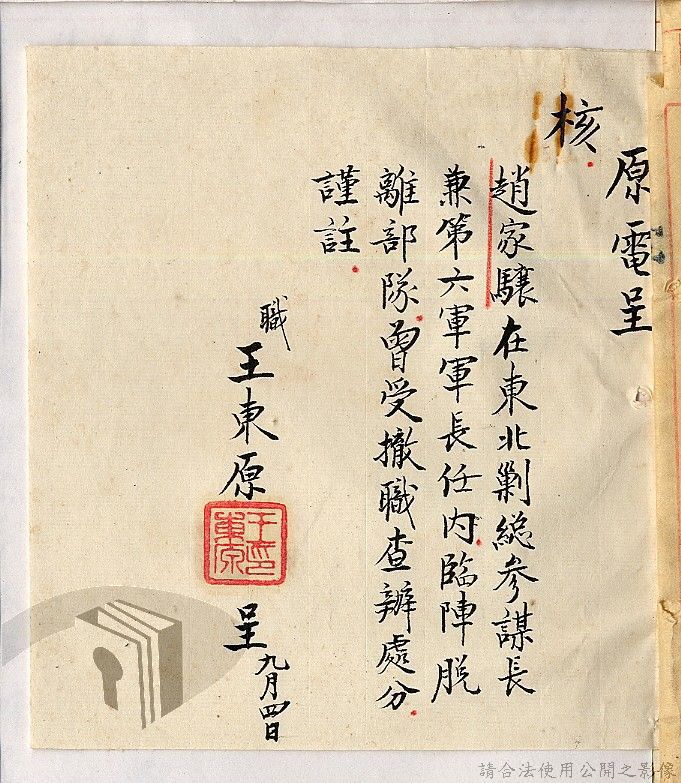 原電呈
核
趙家驤在東北剿総參謀長
兼第六軍軍長任内臨陣脫
離部隊曾受撤職查辦處分
謹註
職
王東原
王東原印
呈
九月四日
請合法使用公開之影像